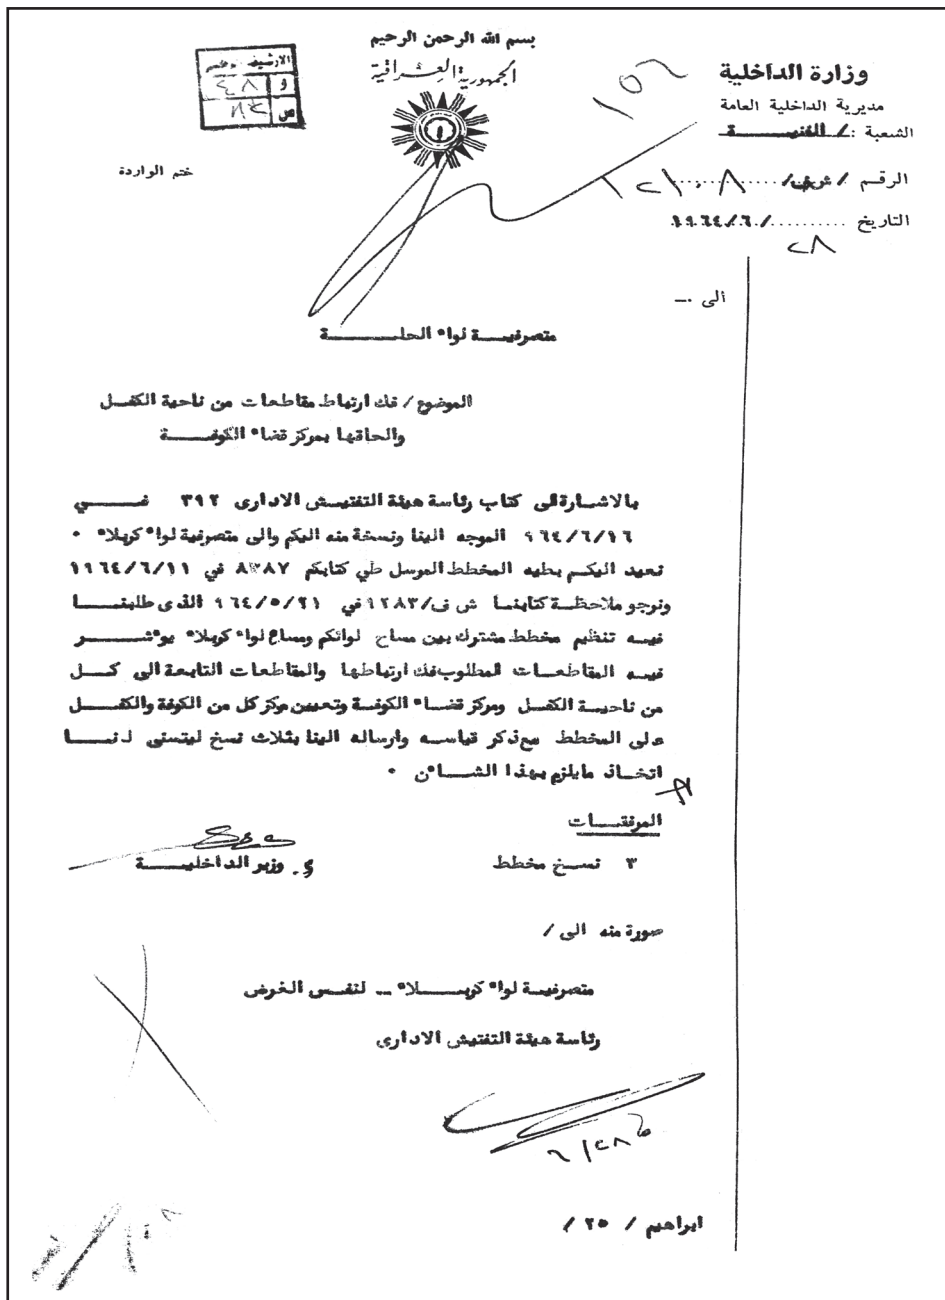 بسم الله الرحمن الرحيم
الجمهورية العراقية
وزارة الداخلية
مديرية الداخلية العامة
الشعبة : / الفنيـــة
الرقم / ش ف /
التاريخ ٢٨ / ٦ / ١٩٦٤
ختم الواردة
الى ـ
متصرفيــة لواء الحلــــة
الموضوع / فك ارتباط مقاطعات من ناحية الكفـل
والحاقها بمركز قضاء الكوفــــة
بالاشارة الى كتاب رئاسة هيئة التفتيـش الادارى ٣٩٢ فــــي
٩٦٤/٦/١٦ الموجه الينا ونسخة منه اليكم والى متصرفية لواء كربلاء ٠
نعيد اليكـم بطيه المخطط المرسل طي كتابكم ٨٣٨٧ في ١٩٦٤/٦/١١
ونرجو ملاحظـة كتابنـا ش ف/١٢٨٣ في ٩٦٤/٥/٢١ الذى طلبنــا
فيـه تنظيم مخطط مشترك بين مساح لوائكم ومساح لواء كربلاء يوءشــــر
فيـه المقاطعـات المطلوب فك ارتباطها والمقاطعات التابعة الى كـــل
من ناحيـة الكفـل ومركز قضـاء الكوفـة وتعيين مركز كل من الكوفة والكفـــل
على المخطط مع ذكر قياسـه وارساله الينا بثلاث نسخ ليتسنى لنــا
اتخـاذ مايلزم بهذا الشــاءن ٠
المرفقــات
٣ نســخ مخطط
و. وزير الداخليــــة
صورة منه الى /
متصرفيـة لواء كربـــلاء ــ لنفـس الغرض
رئاسة هيئة التفتيش الادارى
ابراهيم / ٢٥ /